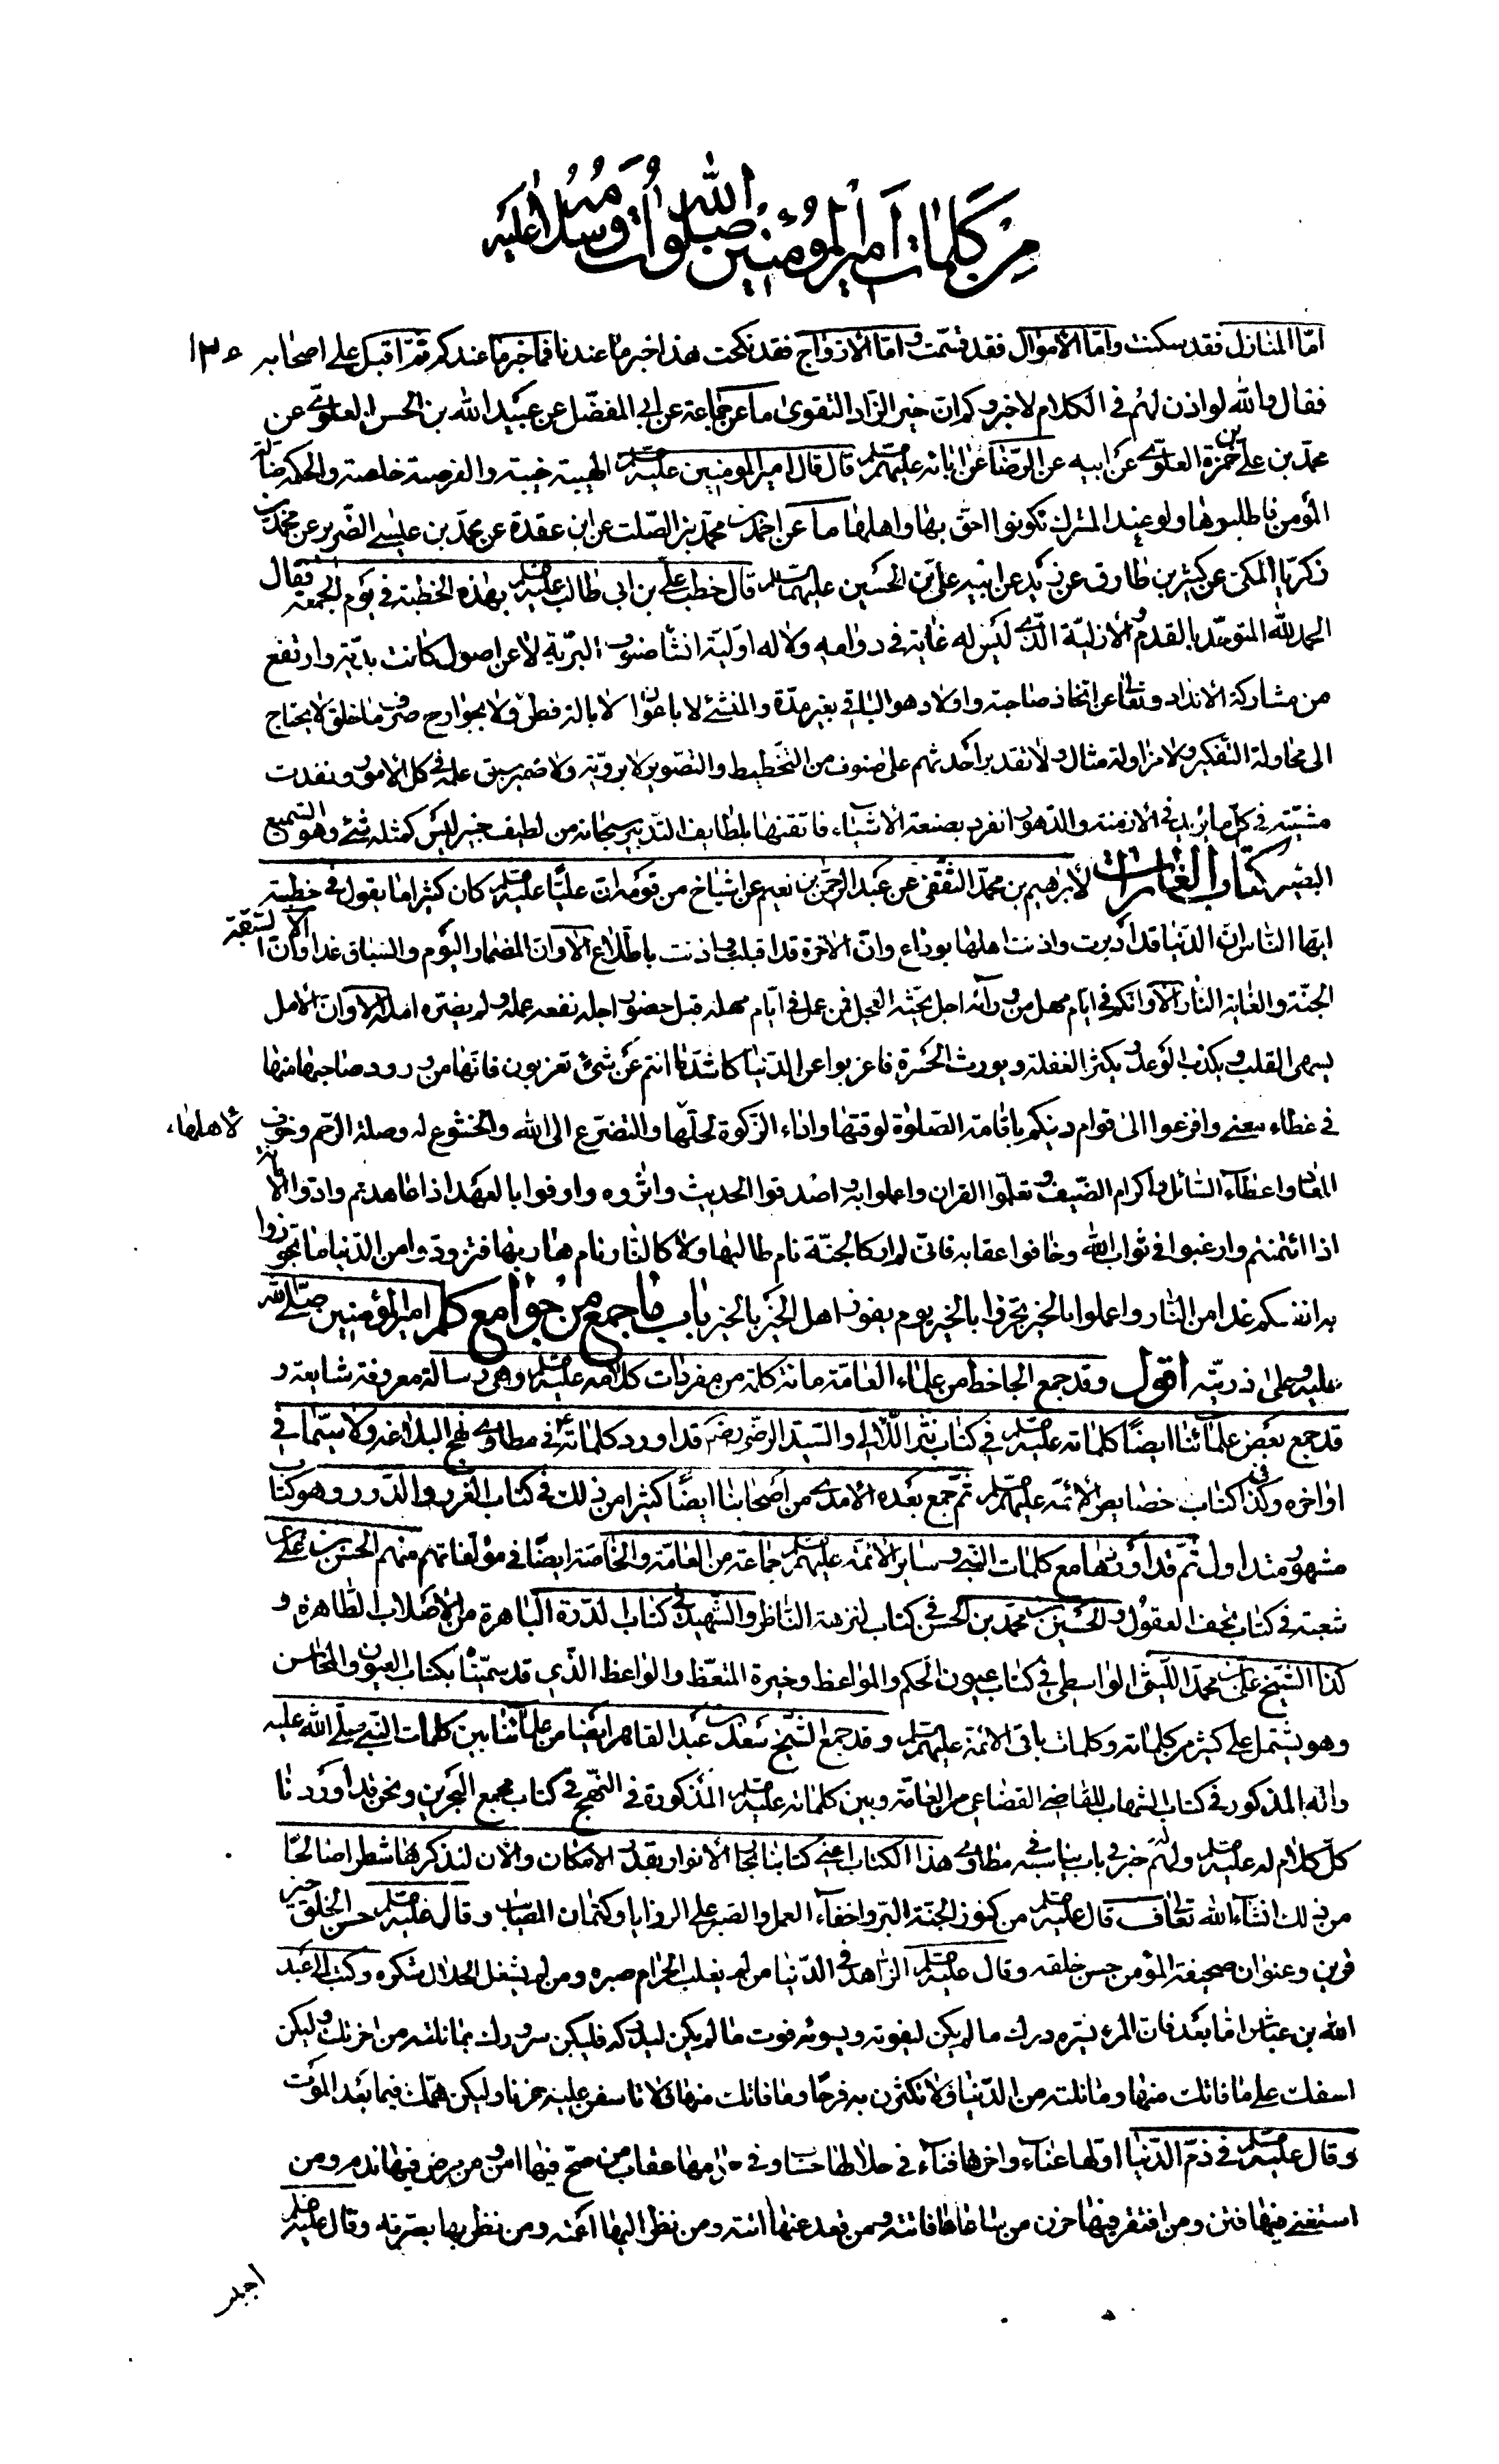 من كلمات امير المؤمنين صلوات الله وسلامه عليه
امّا المنازل فقد سكنت وامّا الأموال فقد قسّمت وامّا الأزواج فقد نكحت هذا خبر ما عندنا فما خبر ما عندكم ثمّ اقبل على اصحابه
١٣٥
فقال والله لو اذن لهم فى الكلام لاخبروكم انّ خير الزّاد التقوى ما عن جماعة عن ابى المفضّل عن عبيد الله بن الحسن العلوىّ عن
محمّد بن علىّ بن حمزة العلوىّ عن ابيه عن الرّضا عن ابائه عليهم السّلام قال قال امير المؤمنين عليه السّلام الهيبة خيبة والفرصة خلصة والحكمة ضالّة
المؤمن فاطلبوها ولو عند المشرك تكونوا احقّ بها واهلها ما عن احمد بن محمّد بن الصّلت عن ابن عقدة عن محمّد بن عيسى الضّرير عن محمّد بن
زكريّا المكّى عن كثير بن طارق عن زيد عن ابيه علىّ بن الحسين عليهما السّلام قال خطب علىّ بن ابى طالب عليه السّلام بهذه الخطبة فى يوم الجمعة فقال
الحمد لله المتوحّد بالقدم والأزليّة الّذى ليس له غاية فى دوامه ولا له اوّليّة انشأ صنوف البريّة لا عن اصول كانت بديّة وارتفع
من مشاركة الأنداد وتعالى عن اتّخاذ صاحبة واولاد هو الباقى بغير مدّة والمنشئ لا باعوان لا بالة فطر ولا بجوارح صرف ما خلق لا يحتاج
الى محاولة التّفكير ولا مزاولة مثال ولا تقدير احدثهم على صنوف من التّخطيط والتّصوير لا برويّة ولا ضمير سبق علمه فى كلّ الأمور ونفذت
مشيّته فى كلّ ما يريد فى الأزمنة والدّهور انفرد بصنعة الأشياء فاتقنها بلطايف التّدبير سبحانه من لطيف خبير ليس كمثله شئ وهو السّميع
البصير كتاب الغارات لأبراهيم بن محمّد الثّقفى عن عبد الرّحمن بن نعيم عن اشياخ من قومه انّ عليّا عليه السّلام كان كثيرا ما يقول فى خطبته
ايّها النّاس انّ الدّنيا قد ادبرت واذنت اهلها بوداع وانّ الأخرة قد اقبلت واذنت باطّلاع الا وانّ المضمار اليوم والسّباق غدا الا وانّ السّبقة
الجنّة والغاية النّار الا وانّكم فى ايّام مهل من ورائه اجل يحثّه العجل فمن عمل فى ايّام مهله قبل حضور اجله نفعه عمله ولم يضرّه امله الا وانّ الأمل
يسهى القلب ويكذب الوعد ويكثر الغفلة ويورث الحسرة فاعزبوا عن الدّنيا كاشدّ ما انتم عن شئ تعزبون فانّها من ورود صاحبها منها
فى غطاء معنى وافزعوا الى قوام دينكم باقامة الصّلوة لوقتها واداء الزّكوة لمحلّها والتضرّع الى الله والخشوع له وصلة الرّحم وخوف
لأهلها،
المعاد واعطاء السّائل واكرام الضّيف وتعلّموا القران واعملوا به واصدقوا الحديث واثروه واوفوا بالعهد اذا عاهدتم وادّوا الأمانة
اذا ائتمنتم وارغبوا فى ثواب الله وخافوا عقابه فانّى لم ار كالجنّة نام طالبها ولا كالنّار نام هاربها فتزوّدوا من الدّنيا ما تحوزوا
به انفسكم غدا من النّار واعملوا بالخير تجزوا بالخير يوم يفوز اهل الخير بالخير باب ما جمع من جوامع كلم امير المؤمنين صلّى الله
عليه وعلى ذريّته اقول وقد جمع الجاحظ من علماء العامّة مائة كلمة من مفردات كلامه عليه السّلام وهى رسالة معروفة شايعة و
قد جمع بعض علمائنا ايضا كلماته عليه السّلام فى كتاب نثر اللّالى والسّيّد الرّضى رضى قد اورد كلماته ع فى مطاوى نهج البلاغة ولا سيّما فى
اواخره وكذا فى كتاب خصايص الأئمّة عليهم السّلام ثمّ جمع بعده الأمدى من اصحابنا ايضا كثيرا من ذلك فى كتاب الغرر والدّرر وهو كتاب
مشهور متداول ثمّ قد اوردها مع كلمات النّبى وساير الأئمّة عليهم السّلام جماعة من العامّة والخاصّة ايضا فى مؤلّفاتهم منهم الحسن بن علىّ بن
شعبة فى كتاب تحف العقول والحسين بن محمّد بن الحسن فى كتاب نزهة النّاظر والشّهيد فى كتاب الدّرة الباهرة من الأصلاب الطّاهرة و
كذا الشّيخ علىّ بن محمّد اللّيثى الواسطى فى كتاب عيون الحكم والمواعظ وذخيرة المتّعظ والواعظ الّذى قد سمّيناه بكتاب العيون والمحاسن
وهو يشتمل على كثير من كلماته وكلمات باقى الأئمّة عليهم السّلام وقد جمع الشّيخ سعد بن عبد القاهر ايضا من علمائنا بين كلمات النّبى صلّى الله عليه
واله المذكور فى كتاب الشّهاب للقاضى القضاعى من العامّة وبين كلماته عليه السّلام المذكورة فى النّهج فى كتاب مجمع البحرين ونحن قد اوردنا
كلّ كلام له عليه السّلام وله ثمّ خبر فى باب يناسبه فى مطاوى هذا الكتاب اعنى كتابنا بحار الأنوار بقدر الامكان والأن لنذكر هنا شطرا صالحا
من ذلك انشاء الله تعالى ف قال عليه السّلام من كنوز الجنّة البرّ واخفاء العمل والصّبر على الرّزايا وكتمان المصايب وقال عليه السّلام حسن الخلق خير
قرين وعنوان صحيفة المؤمن حسن خلقه وقال عليه السّلام الزّاهد فى الدّنيا من لم يغلب الحرام صبره ومن لم يشغل الحلال شكره وكتب الى عبد
الله بن عبّاس امّا بعد فانّ المرء يسرّه درك ما لم يكن ليفوته ويسوئه فوت ما لم يكن ليدركه فليكن سرورك بما نلته من اخرتك وليكن
اسفك على ما فاتك منها وما نلته من الدّنيا فلا تكثرنّ به فرحا وما فاتك منها فلا تأسفنّ عليه حزنا وليكن همّك فيما بعد الموت
وقال عليه السّلام فى ذمّ الدّنيا اوّلها عناء واخرها فناء فى حلالها حساب وفى حرامها عقاب من صحّ فيها امن ومن مرض فيها ندم ومن
استغنى فيها فتن ومن افتقر فيها حزن من ساعاها فاتته ومن قعد عنها اتته ومن نظر اليها اعمته ومن نظر بها بصّرته وقال عليه السّلام